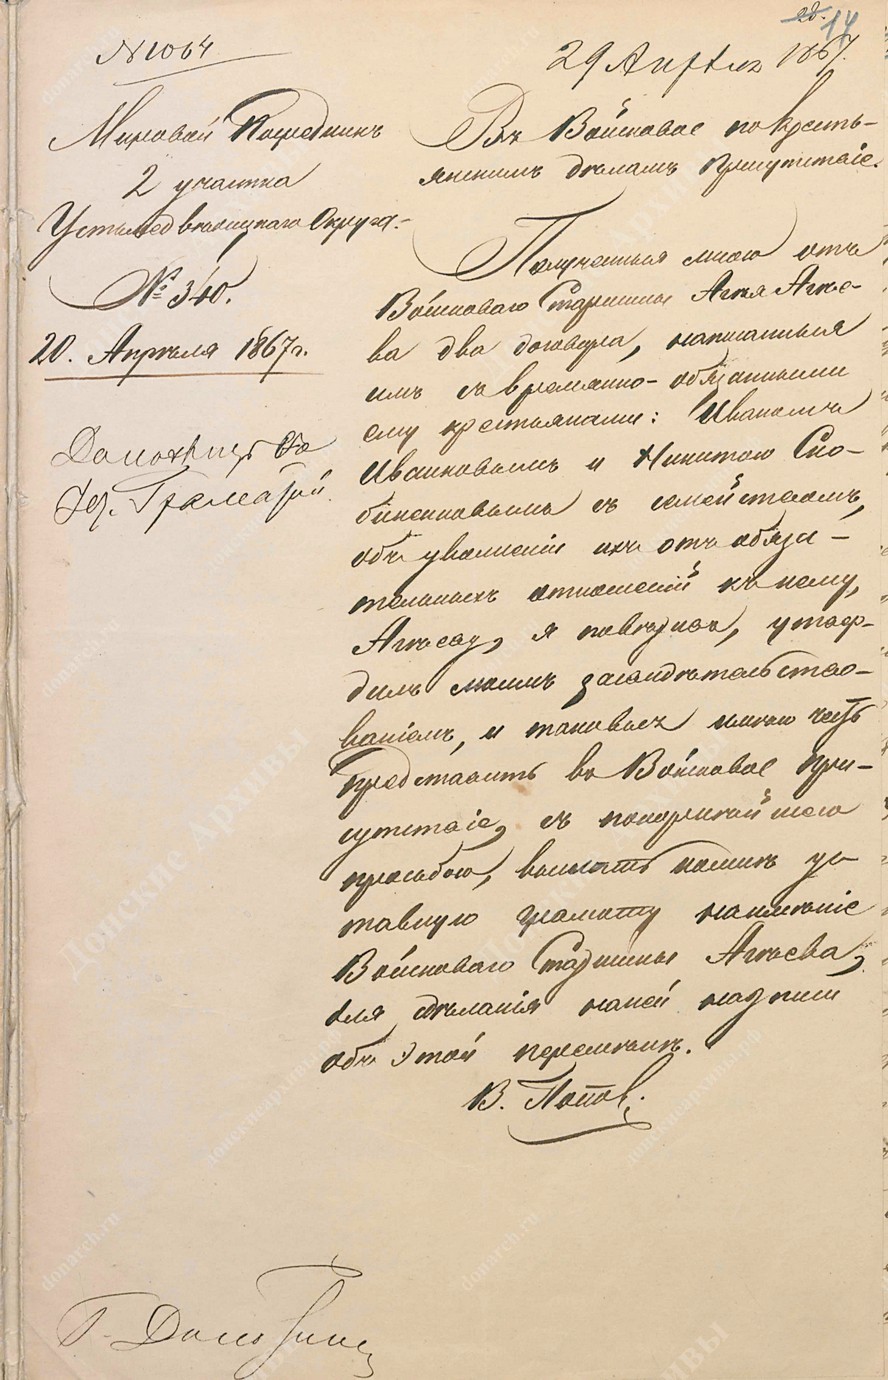 28. 14
№ 1064
29 Апреля 1867.
Мировой Посредникъ
2 участка
Устьмедведицкаго Округа.
№ 340.
20. Апреля 1867 г.
Доложить со
Уст. Грамотой.
Въ Войсковое по кресть-
янскимъ деламъ Присутствіе.
Полученныя мною отъ
Войсковаго Старшины Агѣя Агѣе-
ва два договора, написанныя
имъ съ временно-обязанными
ему крестьянами: Иваномъ
Иванковымъ и Никитою Ско-
съ семействомъ,
объ увольненіи ихъ отъ обяза-
тельныхъ отношеній къ нему,
Агѣеву, я повѣривъ, утвер-
дилъ моимъ засвидѣтельство-
ваніемъ, и таковые имѣю честь
представить въ Войсковое При-
сутствіе, съ покорнейшею
просьбою, выслать комнѣ ус-
тавную грамоту наименіе
Войсковаго Старшины Агѣева,
для сдѣланія наней надписи
объ этой перемѣнѣ.
В. Поповъ.